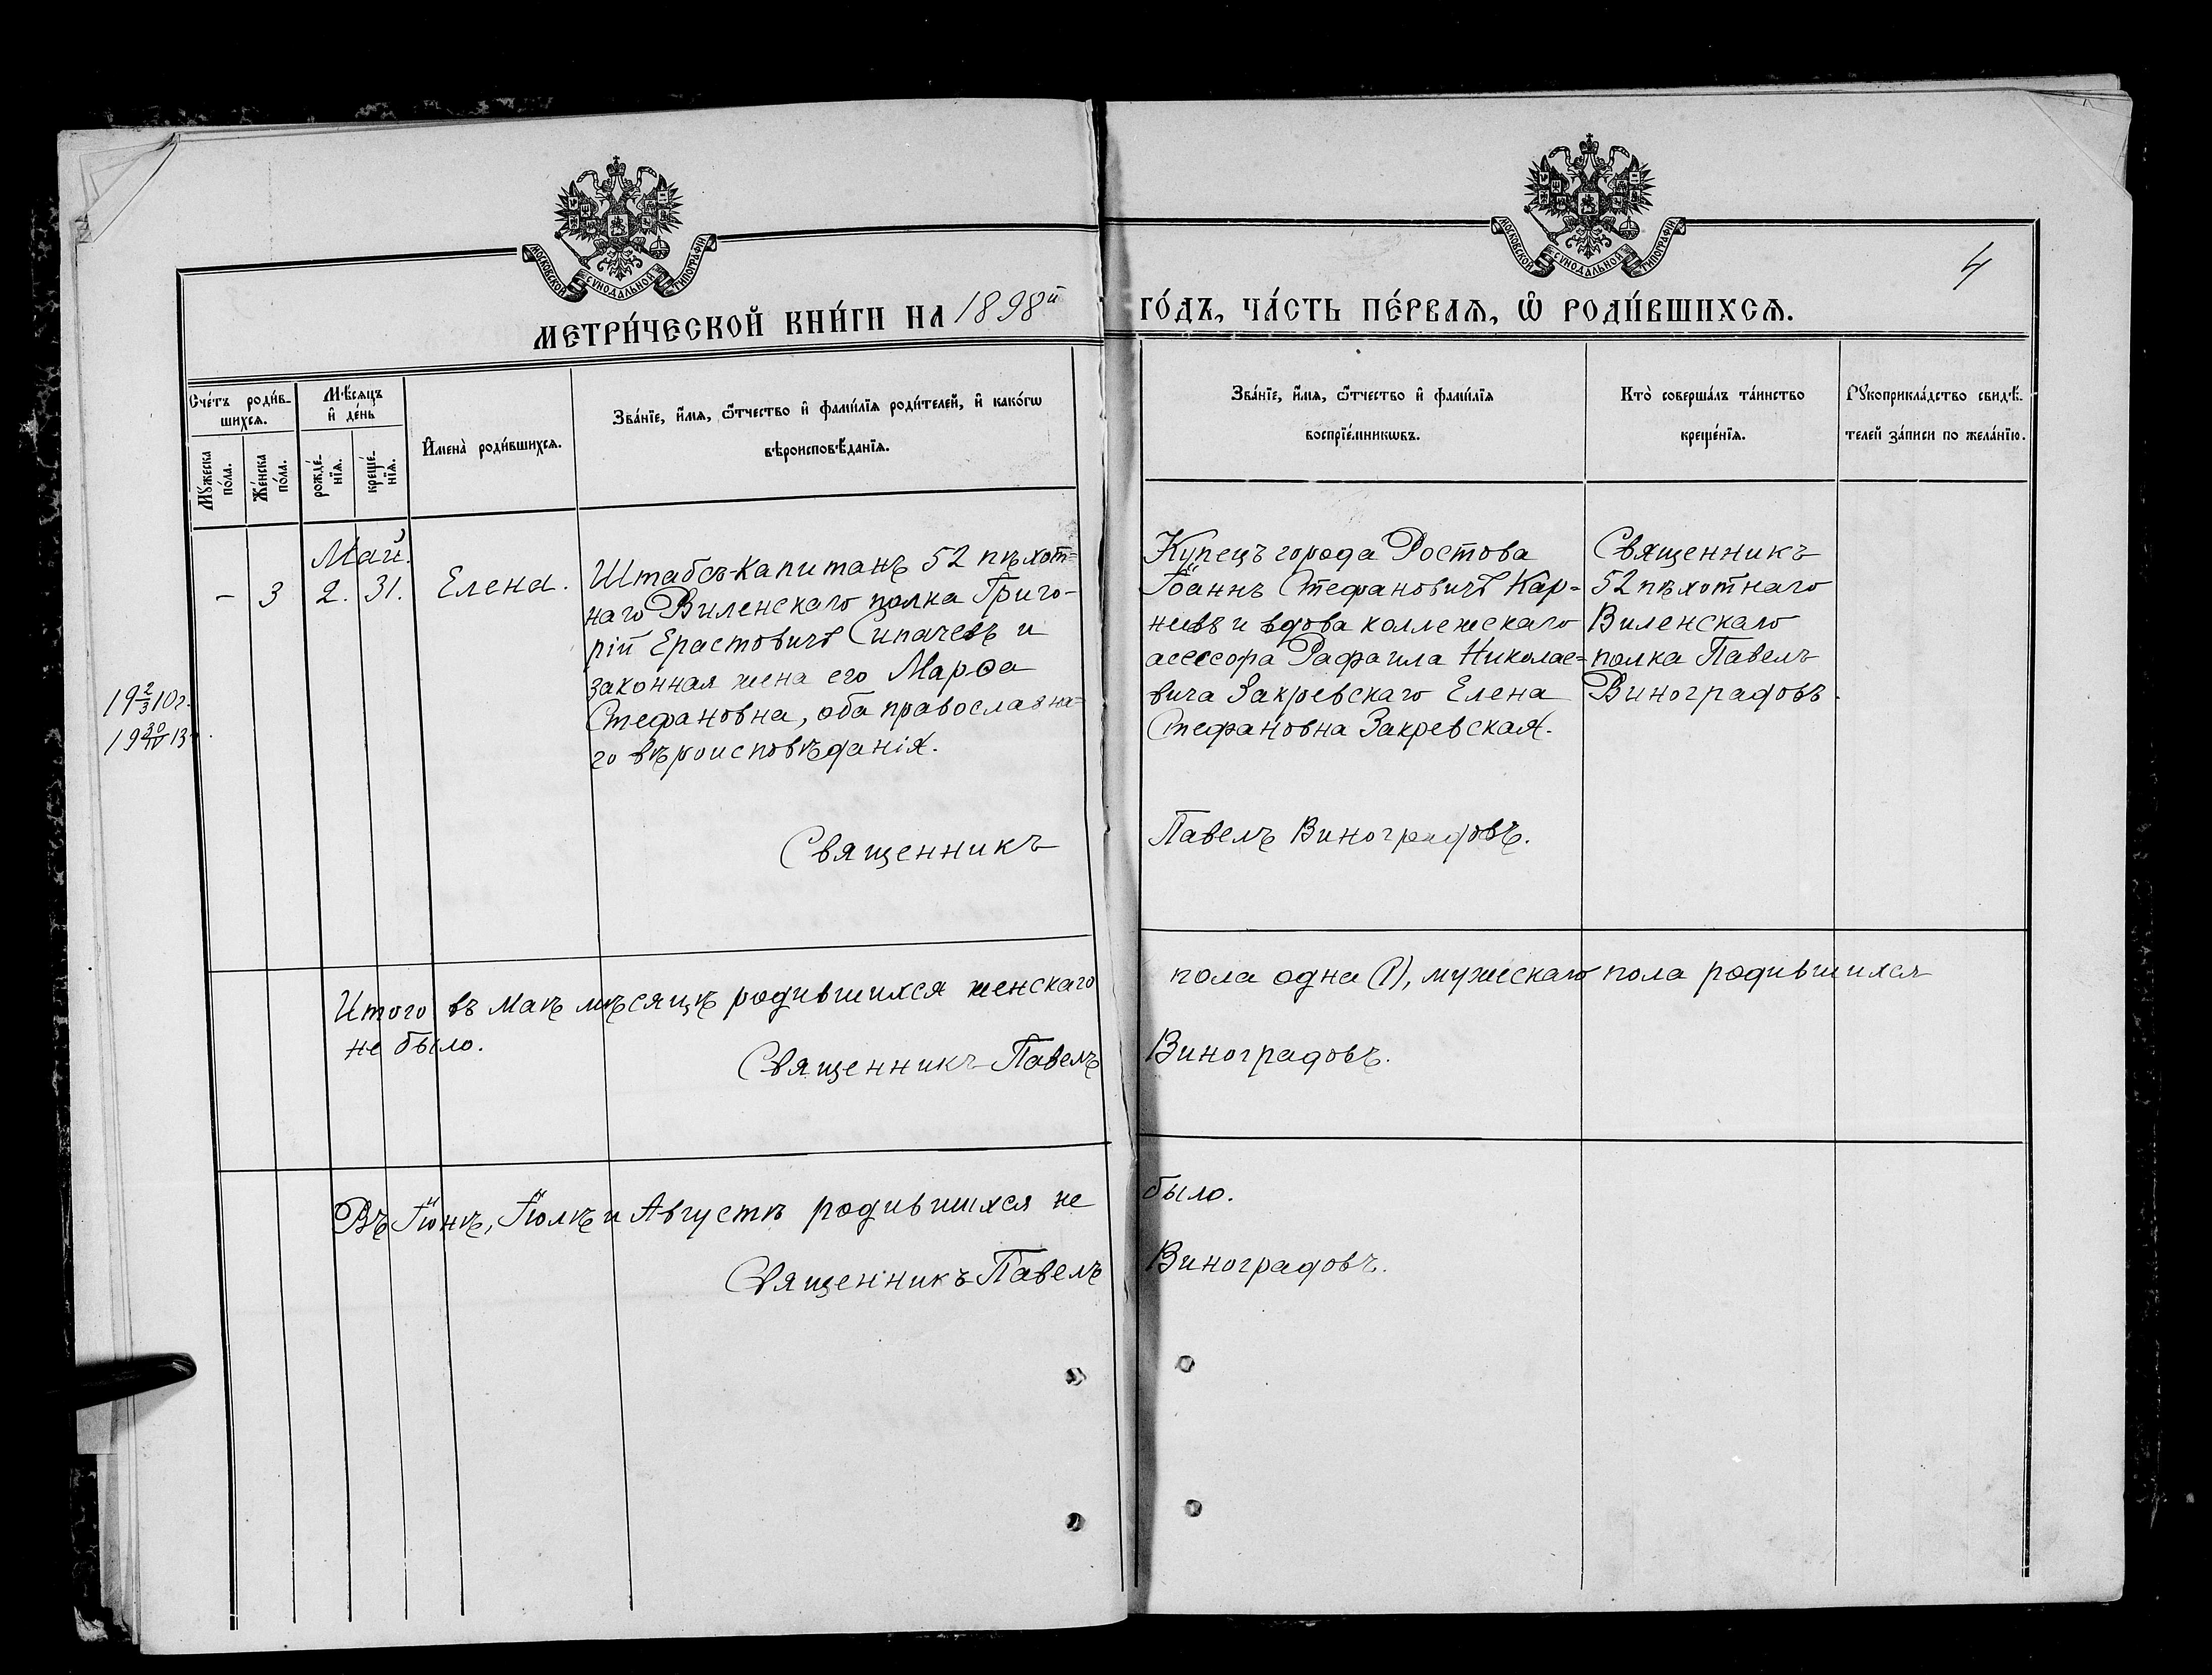 МОСКОВСКОЙ СѴНОДАЛЬНОЙ ТИПОГРАФІИ
МОСКОВСКОЙ СѴНОДАЛЬНОЙ ТИПОГРАФІИ
4
МЕТРИ́ЧЕСКОЙ КНИ́ГИ НА 1898й ГО́ДЪ, ЧА́СТЬ ПЕ́РВАѦ, Ѡ҆ РОДИ́ВШИХСѦ.
Сче́тъ роди́в-
шихсѧ.
Мꙋ́жеска по́ла.
Же́нска по́ла.
Мѣ́сѧцъ
и҆ де́нь
рожде́-
нїѧ.
креще́-
нїѧ.
И҆мена̀ роди́вшихсѧ.
Зва́нїе, и҆́мѧ, ѻ҆́тчество и҆ фами́лїѧ роди́телей, и҆ како́гѡ
вѣроисповѣ́данїѧ.
Зва́нїе, и҆́мѧ, ѻ҆́тчество и҆ фами́лїѧ
воспрїе́мникѡвъ.
Кто̀ соверша́лъ та́инство
креще́нїѧ.
Рꙋкоприкла́дство свидѣ́-
телей за́писи по жела́нїю.
Май.
- 3 2. 31. Елена.
Штабсъ-капитанъ 52 пѣхот=
наго Виленскаго полка Григо-
рій Ерастовичъ Сипачевъ и
законная жена его Марѳа
Стефановна, оба православна=
го вѣроисповѣданія.
Купецъ города Ростова
Іоаннъ Стефановичъ Кар=
невъ и вдова коллежскаго
асессора Рафаила Николае=
вича Закревскаго Елена
Стефановна Закревская.
Священникъ
52 пѣхотнаго
Виленскаго
полка Павелъ
Виноградовъ.
19 2/3 10 г.
Священникъ Павелъ Виноградовъ.
Итого въ маѣ мѣсяцѣ родившихся женскаго пола одна (1), мужескаго пола родившихся
не было.
Священникъ Павелъ Виноградовъ.
Въ Іюнѣ, Іюлѣ и Августѣ родившихся не было.
Священникъ Павелъ Виноградовъ.